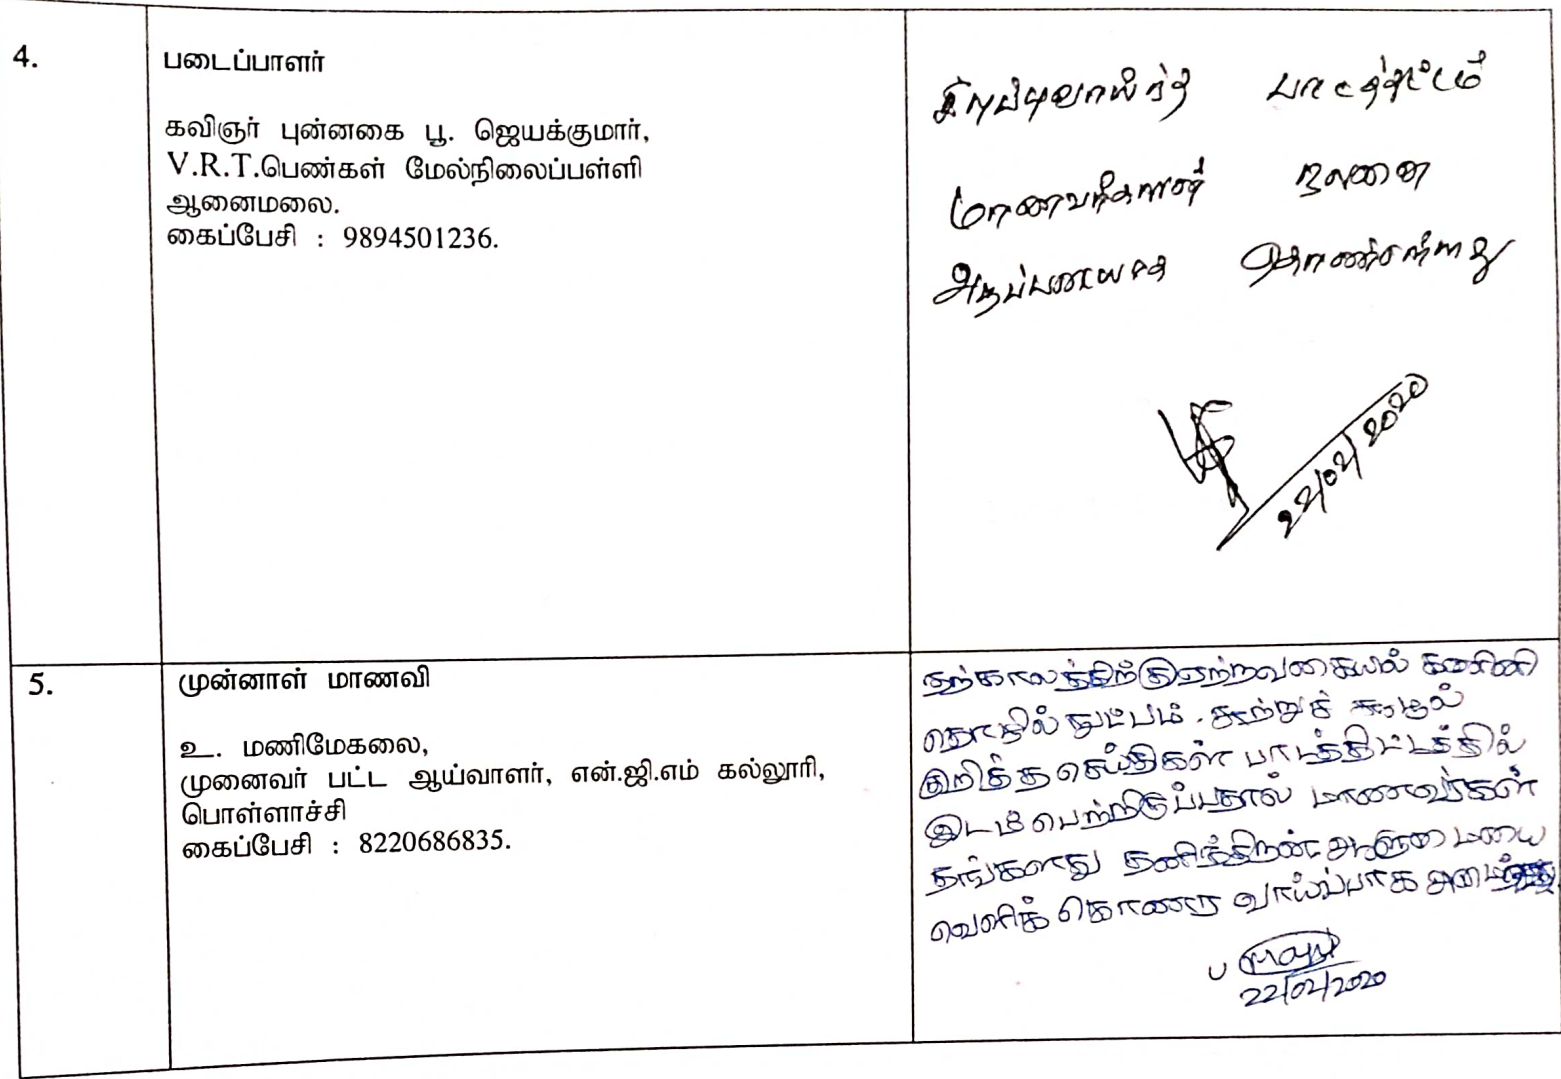 4.
படைப்பாளர்
கவிஞர் புன்னகை பூ. ஜெயக்குமார்,
V.R.T.பெண்கள் மேல்நிலைப்பள்ளி
ஆனைமலை.
கைப்பேசி : 9894501236.
சிறப்புவாய்ந்த பாடத்திட்டம்
மாணவர்களின் நலனை
22/02/2020
5.
முன்னாள் மாணவி
உ. மணிமேகலை,
முனைவர் பட்ட ஆய்வாளர், என்.ஜி.எம் கல்லூரி,
பொள்ளாச்சி
கைப்பேசி : 8220686835.
தற்காலத்திற்கு ஏற்றவகையில் கணினி
தொழில் நுட்பம், சுற்றுச் சூழல்
குறித்த செய்திகள் பாடத்திட்டத்தில்
இடம் பெற்றிருப்பதால் மாணவர்கள்
தங்களது தனித்திறன் ஆளுமையை
வெளிக் கொணர வாய்ப்பாக
22/02/2020